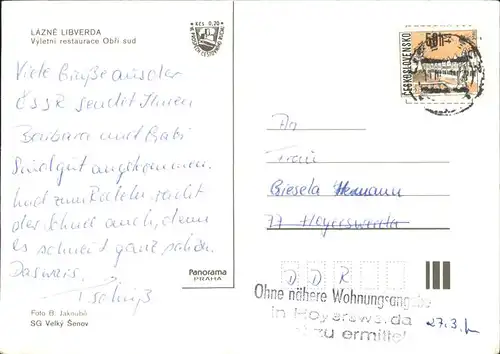 LÁZNĚ LIBVERDA
Výletní restaurace Obří sud
Kčs 0,20
ČESKOSLOVENSKO
50h
Viele Grüße aus der
ČSSR sendet Ihnen
Barbara und Gabi
Sind gut angekommen.
Und zum Rodeln reicht
der Schnee auch, denn
es schneit ganz schön.
Das wärs.
Tschüß
An
Frau
Giesela Hermann
77 Hoyerswerda
D D R
Ohne nähere Wohnungsangabe
in Hoyerswerda
zu ermittel
27.3.
Panorama
PRAHA
Foto B. Jakoubě
SG Velký Šenov